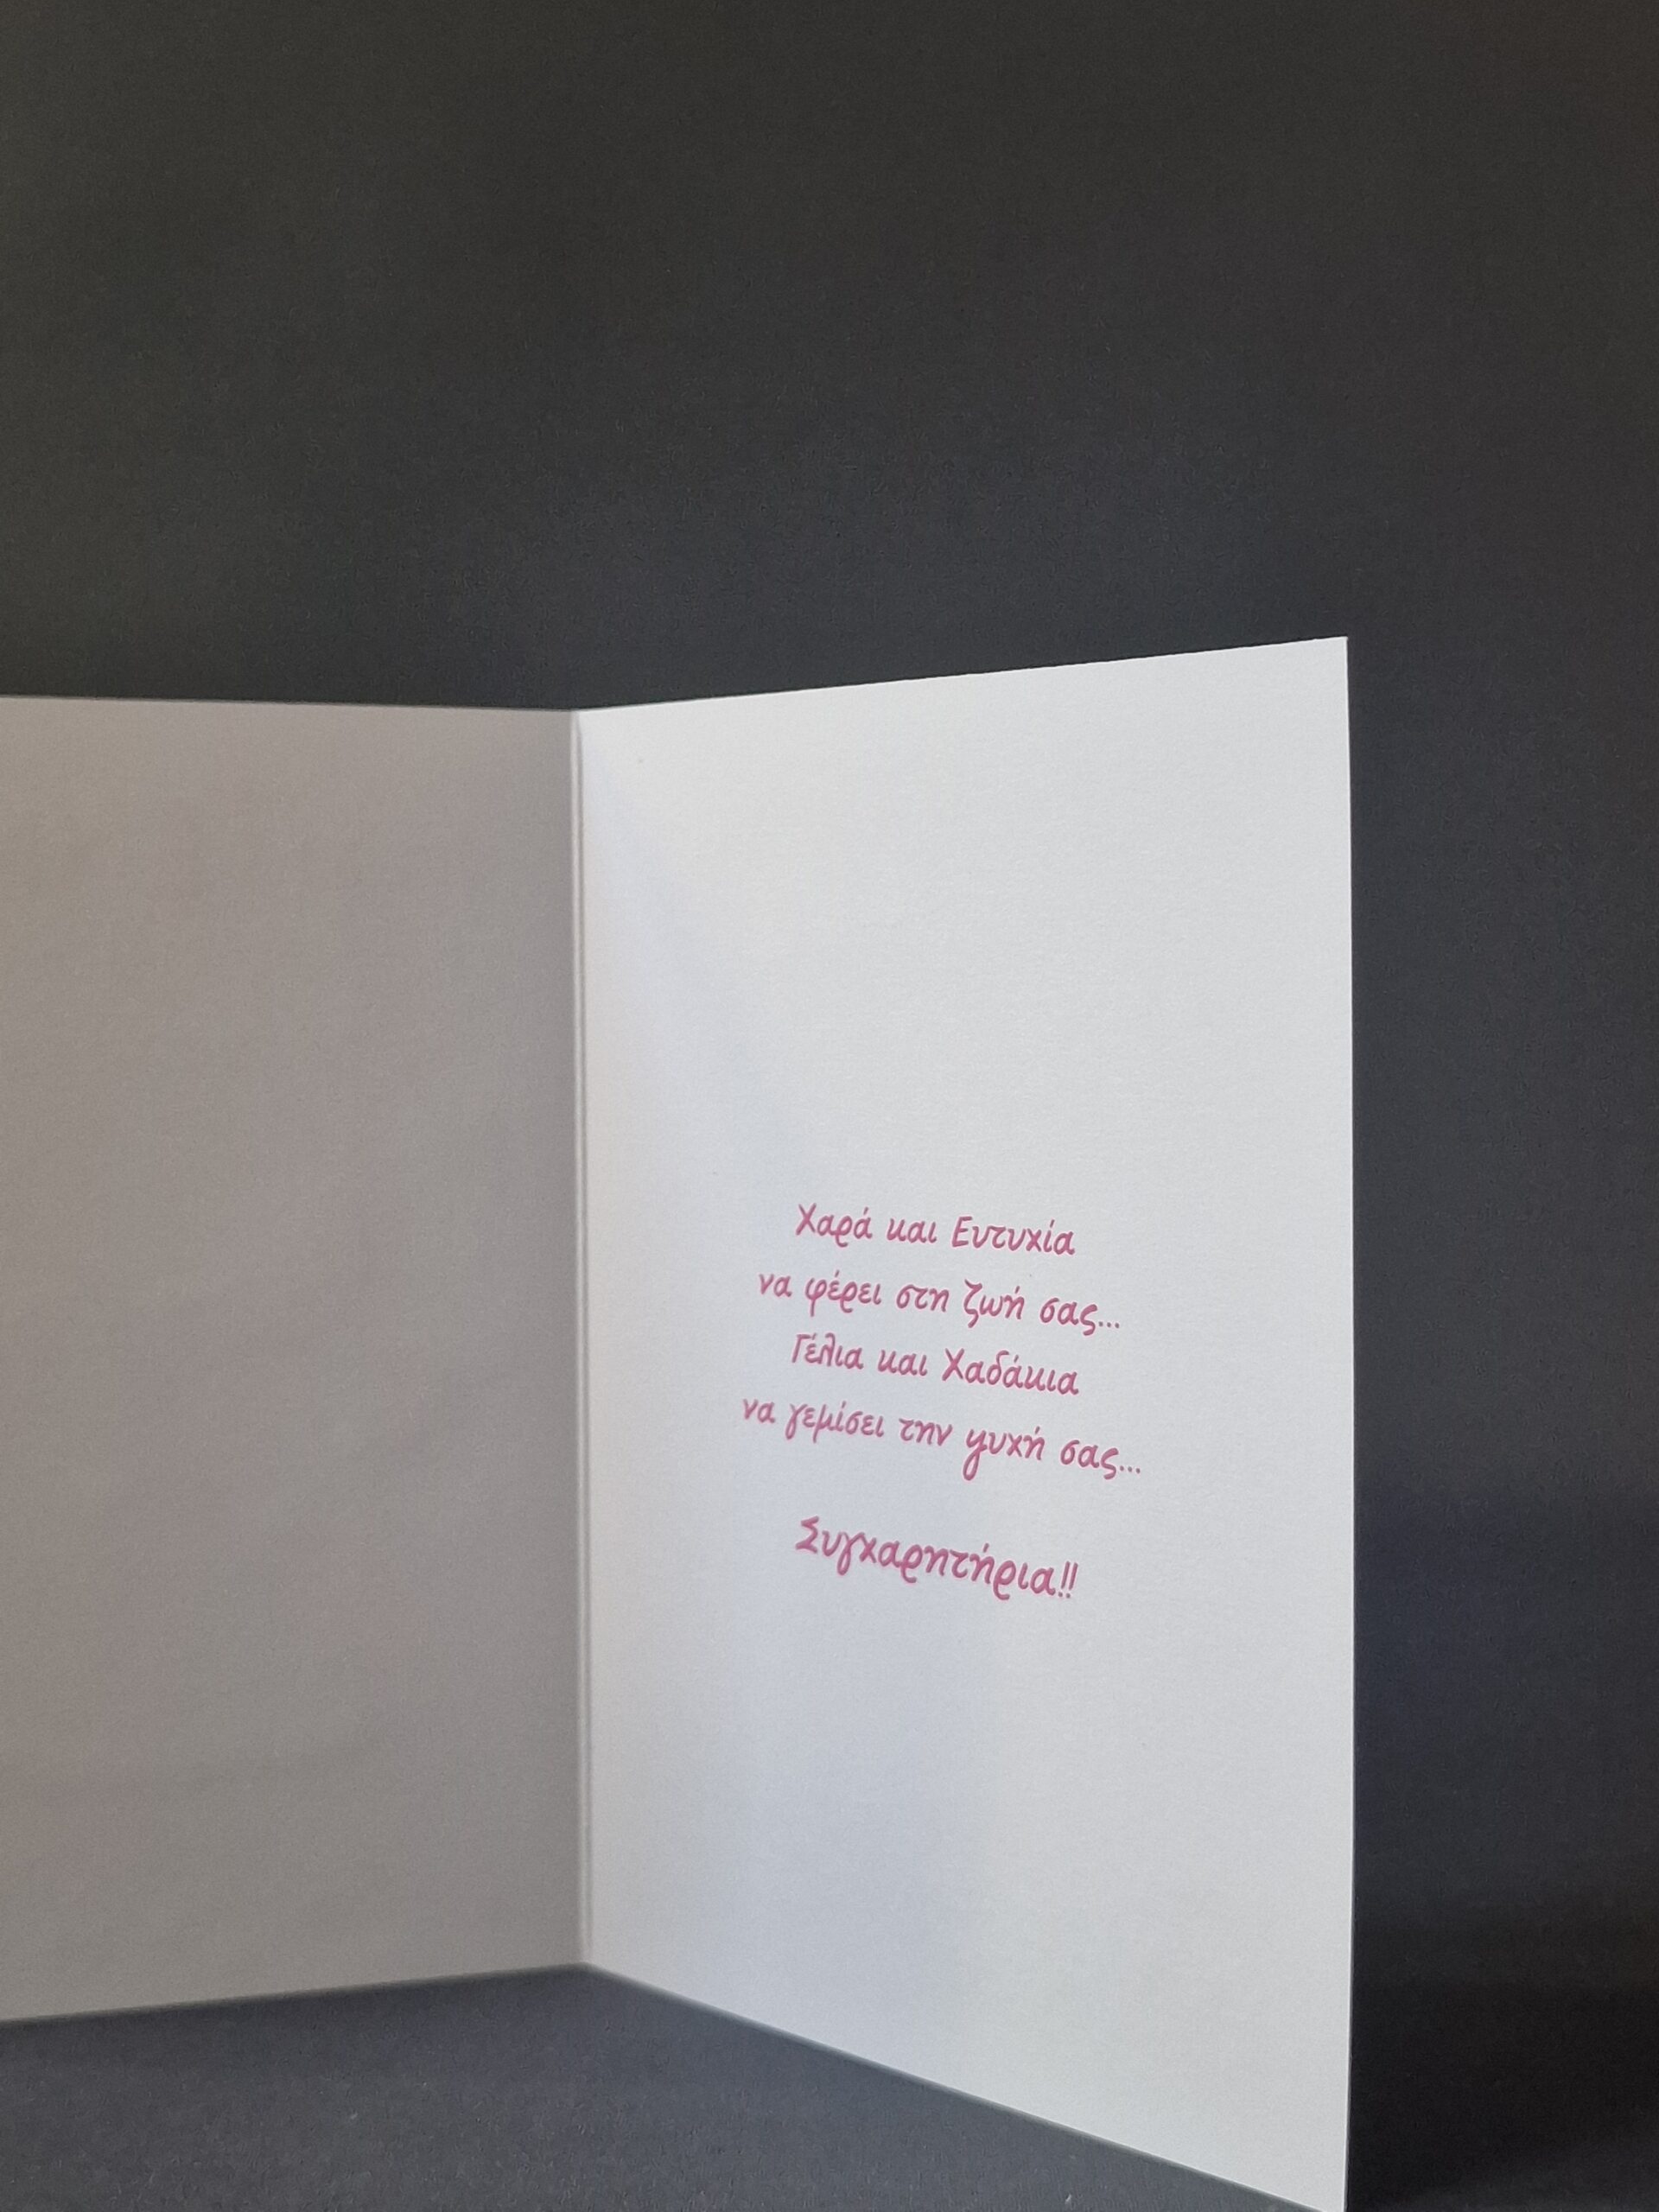 Χαρά και Ευτυχία
να φέρει στη ζωή σας...
Γέλια και Χαδάκια
να γεμίσει την ψυχή σας...
Συγχαρητήρια!!